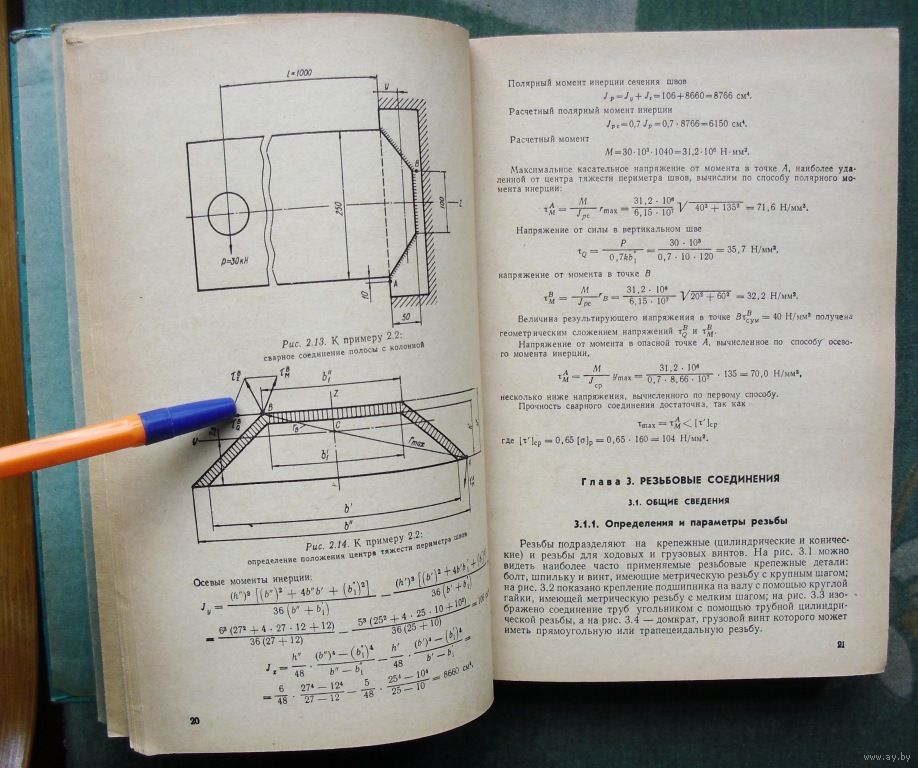 l=1000
U
B
250
100
z
P=30кН
A
10
50
Рис. 2.13. К примеру 2.2:
сварное соединение полосы с колонной
b₁″
Z
B
C
r_B
r_max
b₁′
b′
b″
Рис. 2.14. К примеру 2.2:
определение положения центра тяжести периметра швов
Осевые моменты инерции:
36 (b″ + b₁″)
36 (b′ + b₁′)
= 6³ (27² + 4 · 27 · 12 + 12²) / 36 (27 + 12) − 5³ (25² + 4 · 25 · 10 + 10²) / 36 (25 + 10)
= 6/48 · (27⁴ − 12⁴)/(27 − 12) − 5/48 · (25⁴ − 10⁴)/(25 − 10) = 8660 см⁴.
20
Полярный момент инерции сечения швов
J_p = J_y + J_z = 106 + 8660 = 8766 см⁴.
Расчетный полярный момент инерции
J_pc = 0,7 J_p = 0,7 · 8766 = 6150 см⁴.
Расчетный момент
M = 30·10³·1040 = 31,2·10⁶ Н·мм².
Максимальное касательное напряжение от момента в точке А, наиболее уда-
ленной от центра тяжести периметра швов, вычислим по способу полярного мо-
мента инерции:
τ_M^A = M/J_pc r_max = 31,2 · 10⁶ / 6,15 · 10⁷ √40² + 135² = 71,6 Н/мм².
Напряжение от силы в вертикальном шве
τ_Q = P / 0,7kb₁′ = 30 · 10³ / 0,7 · 10 · 120 = 35,7 Н/мм².
напряжение от момента в точке В
τ_M^B = M/J_pc r_B = 31,2 · 10⁶ / 6,15 · 10⁷ √20² + 60² = 32,2 Н/мм².
Величина результирующего напряжения в точке Bτ_сум^B = 40 Н/мм² получена
геометрическим сложением напряжений τ_Q^B и τ_M^B.
Напряжение от момента в опасной точке А, вычисленное по способу осево-
го момента инерции,
τ_M^A = M/J_cp y_max = 31,2 · 10⁶ / 0,7 · 8,66 · 10⁷ · 135 = 70,0 Н/мм²,
несколько ниже напряжения, вычисленного по первому способу.
Прочность сварного соединения достаточна, так как
τ_max = τ_M^A < [τ′]_ср
где [τ′]_ср = 0,65 [σ]_р = 0,65 · 160 = 104 Н/мм².
Глава 3. РЕЗЬБОВЫЕ СОЕДИНЕНИЯ
3.1. ОБЩИЕ СВЕДЕНИЯ
3.1.1. Определения и параметры резьбы
Резьбы подразделяют на крепежные (цилиндрические и коничес-
кие) и резьбы для ходовых и грузовых винтов. На рис. 3.1 можно
видеть наиболее часто применяемые резьбовые крепежные детали:
болт, шпильку и винт, имеющие метрическую резьбу с крупным шагом;
на рис. 3.2 показано крепление подшипника на валу с помощью круглой
гайки, имеющей метрическую резьбу с мелким шагом; на рис. 3.3 изо-
бражено соединение труб угольником с помощью трубной цилиндри-
ческой резьбы, а на рис. 3.4 — домкрат, грузовой винт которого может
иметь прямоугольную или трапецеидальную резьбу.
21
www.ay.by